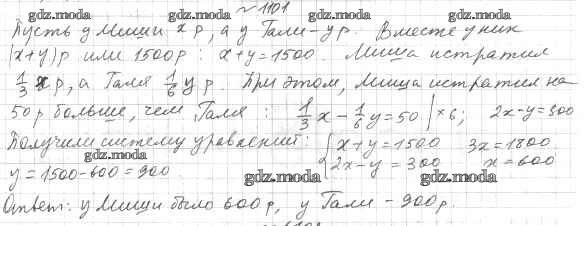 № 1101
gdz.moda gdz.moda gdz.moda gdz.moda
Пусть у Миши x р, а у Гали – y р. Вместе у них
(x+y) р или 1500 р : x+y=1500. Миша истратил
1/3 x р, а Галя 1/6 y р. При этом, Миша истратил на
gdz.moda gdz.moda gdz.moda gdz.moda
50 р больше, чем Галя : 1/3 x - 1/6 y = 50 | × 6; 2x-y=300
Получили систему уравнений: { x+y=1500 3x=1800
gdz.moda
y=1500-600=900. 2x-y=300 x=600
gdz.moda gdz.moda gdz.moda
Ответ: у Миши было 600 р, у Гали – 900 р.